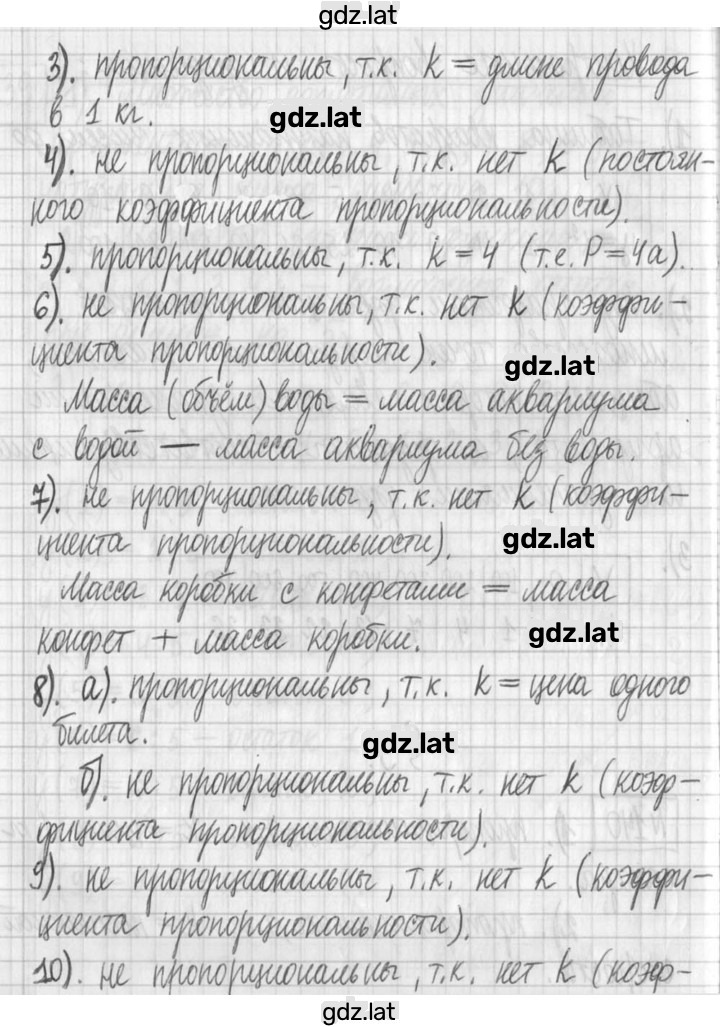 gdz.lat
3). пропорциональны, т.к. k = длине провода
в 1 кг.
gdz.lat
4). не пропорциональны, т.к. нет k (постоян-
ного коэффициента пропорциональности).
5). пропорциональны, т.к. k = 4 (т.е. P = 4a).
6). не пропорциональны, т.к. нет k (коэффи-
циента пропорциональности).
gdz.lat
Масса (объём) воды = масса аквариума
с водой — масса аквариума без воды.
7). не пропорциональны, т.к. нет k (коэффи-
циента пропорциональности).
gdz.lat
Масса коробки с конфетами = масса
конфет + масса коробки.
gdz.lat
8). а). пропорциональны, т.к. k = цена одного
билета.
gdz.lat
б). не пропорциональны, т.к. нет k (коэф-
фициента пропорциональности).
9). не пропорциональны, т.к. нет k (коэффи-
циента пропорциональности).
10). не пропорциональны, т.к. нет k (коэф-
gdz.lat